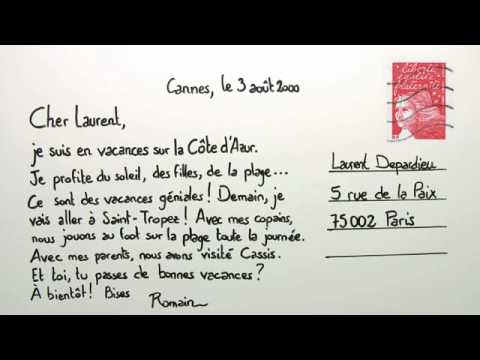 Cannes, le 3 août 2000
Cher Laurent,
je suis en vacances sur la Côte d'Azur.
Je profite du soleil, des filles, de la plage...
Ce sont des vacances géniales ! Demain, je
vais aller à Saint-Tropez ! Avec mes copains,
nous jouons au foot sur la plage toute la journée.
Avec mes parents, nous avons visité Cassis.
Et toi, tu passes de bonnes vacances ?
À bientôt ! Bises
Romain
liberté
égalité
fraternité
Laurent Depardieu
5 rue de la Paix
75002 Paris